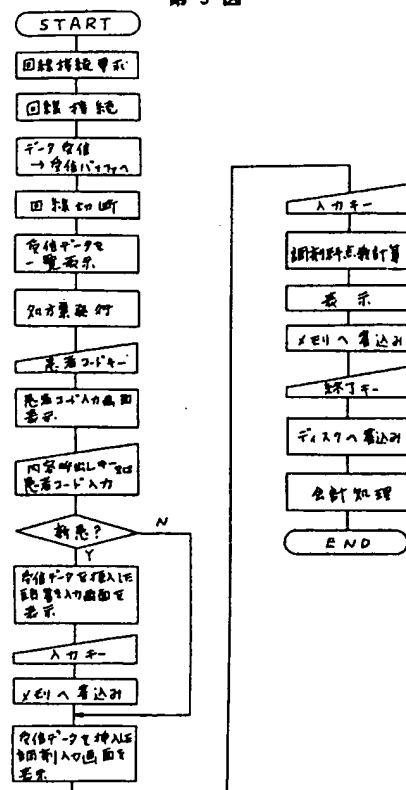 第5図
START
回線接続要求
回線接続
データ受信
→受信バッファへ
回線切断
受信データを
一覧表示
処方箋発行
患者コードキー
患者コード入力画面
表示
内容呼出しキー又は
患者コード入力
新患?
N
Y
受信データを挿入した
頭書き入力画面を
表示
入力キー
メモリへ書込み
受信データを挿入した
調剤入力画面を
表示
入力キー
調剤料点数計算
表示
メモリへ書込み
終了キー
ディスクへ書込み
会計処理
END